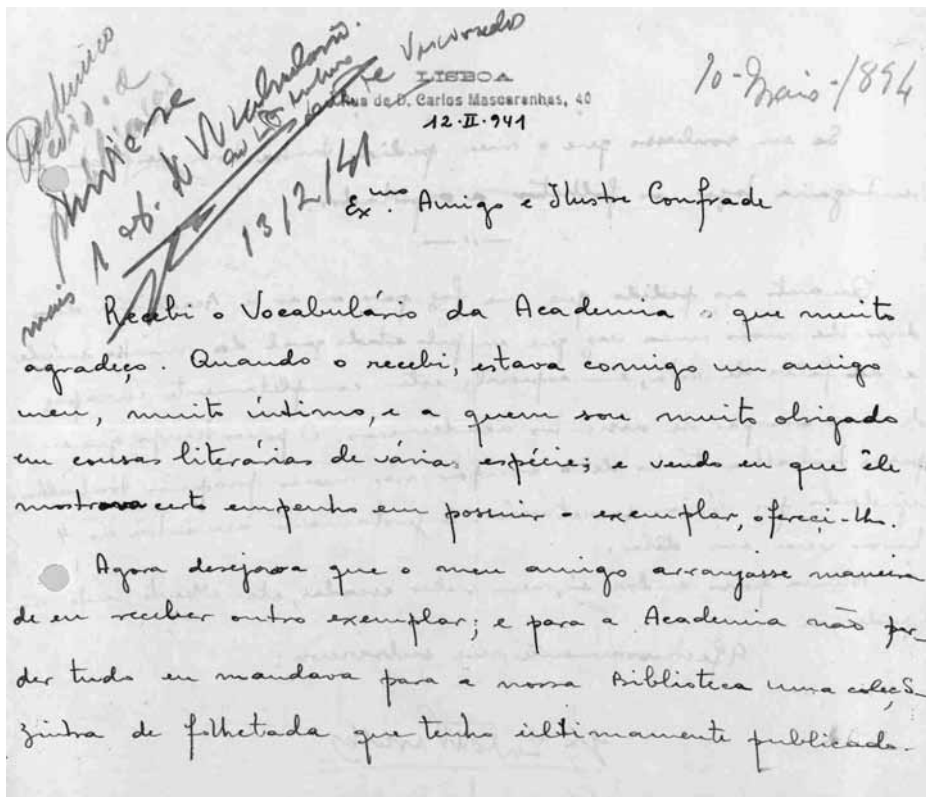 Vocabulário.
mais 1 ex. do Vocabulário
13/2/41
LISBOA
Rua de D. Carlos Mascarenhas, 40
12·II·941
10-Maio-1894
Ex.mo Amigo e Ilustre Confrade
Recebi o Vocabulário da Academia o que muito
agradeço. Quando o recebi, estava comigo um amigo
meu, muito íntimo, e a quem sou muito obrigado
em cousas literárias de várias espécies e vendo eu que êle
mostrava certo empenho em possuir o exemplar, ofereci-lho.
Agora desejava que o meu amigo arranjasse maneira
de eu receber outro exemplar; e para a Academia não per-
der tudo eu mandava para a nossa Biblioteca uma colecçã-
zinha de folhetada que tenho ùltimamente publicado.